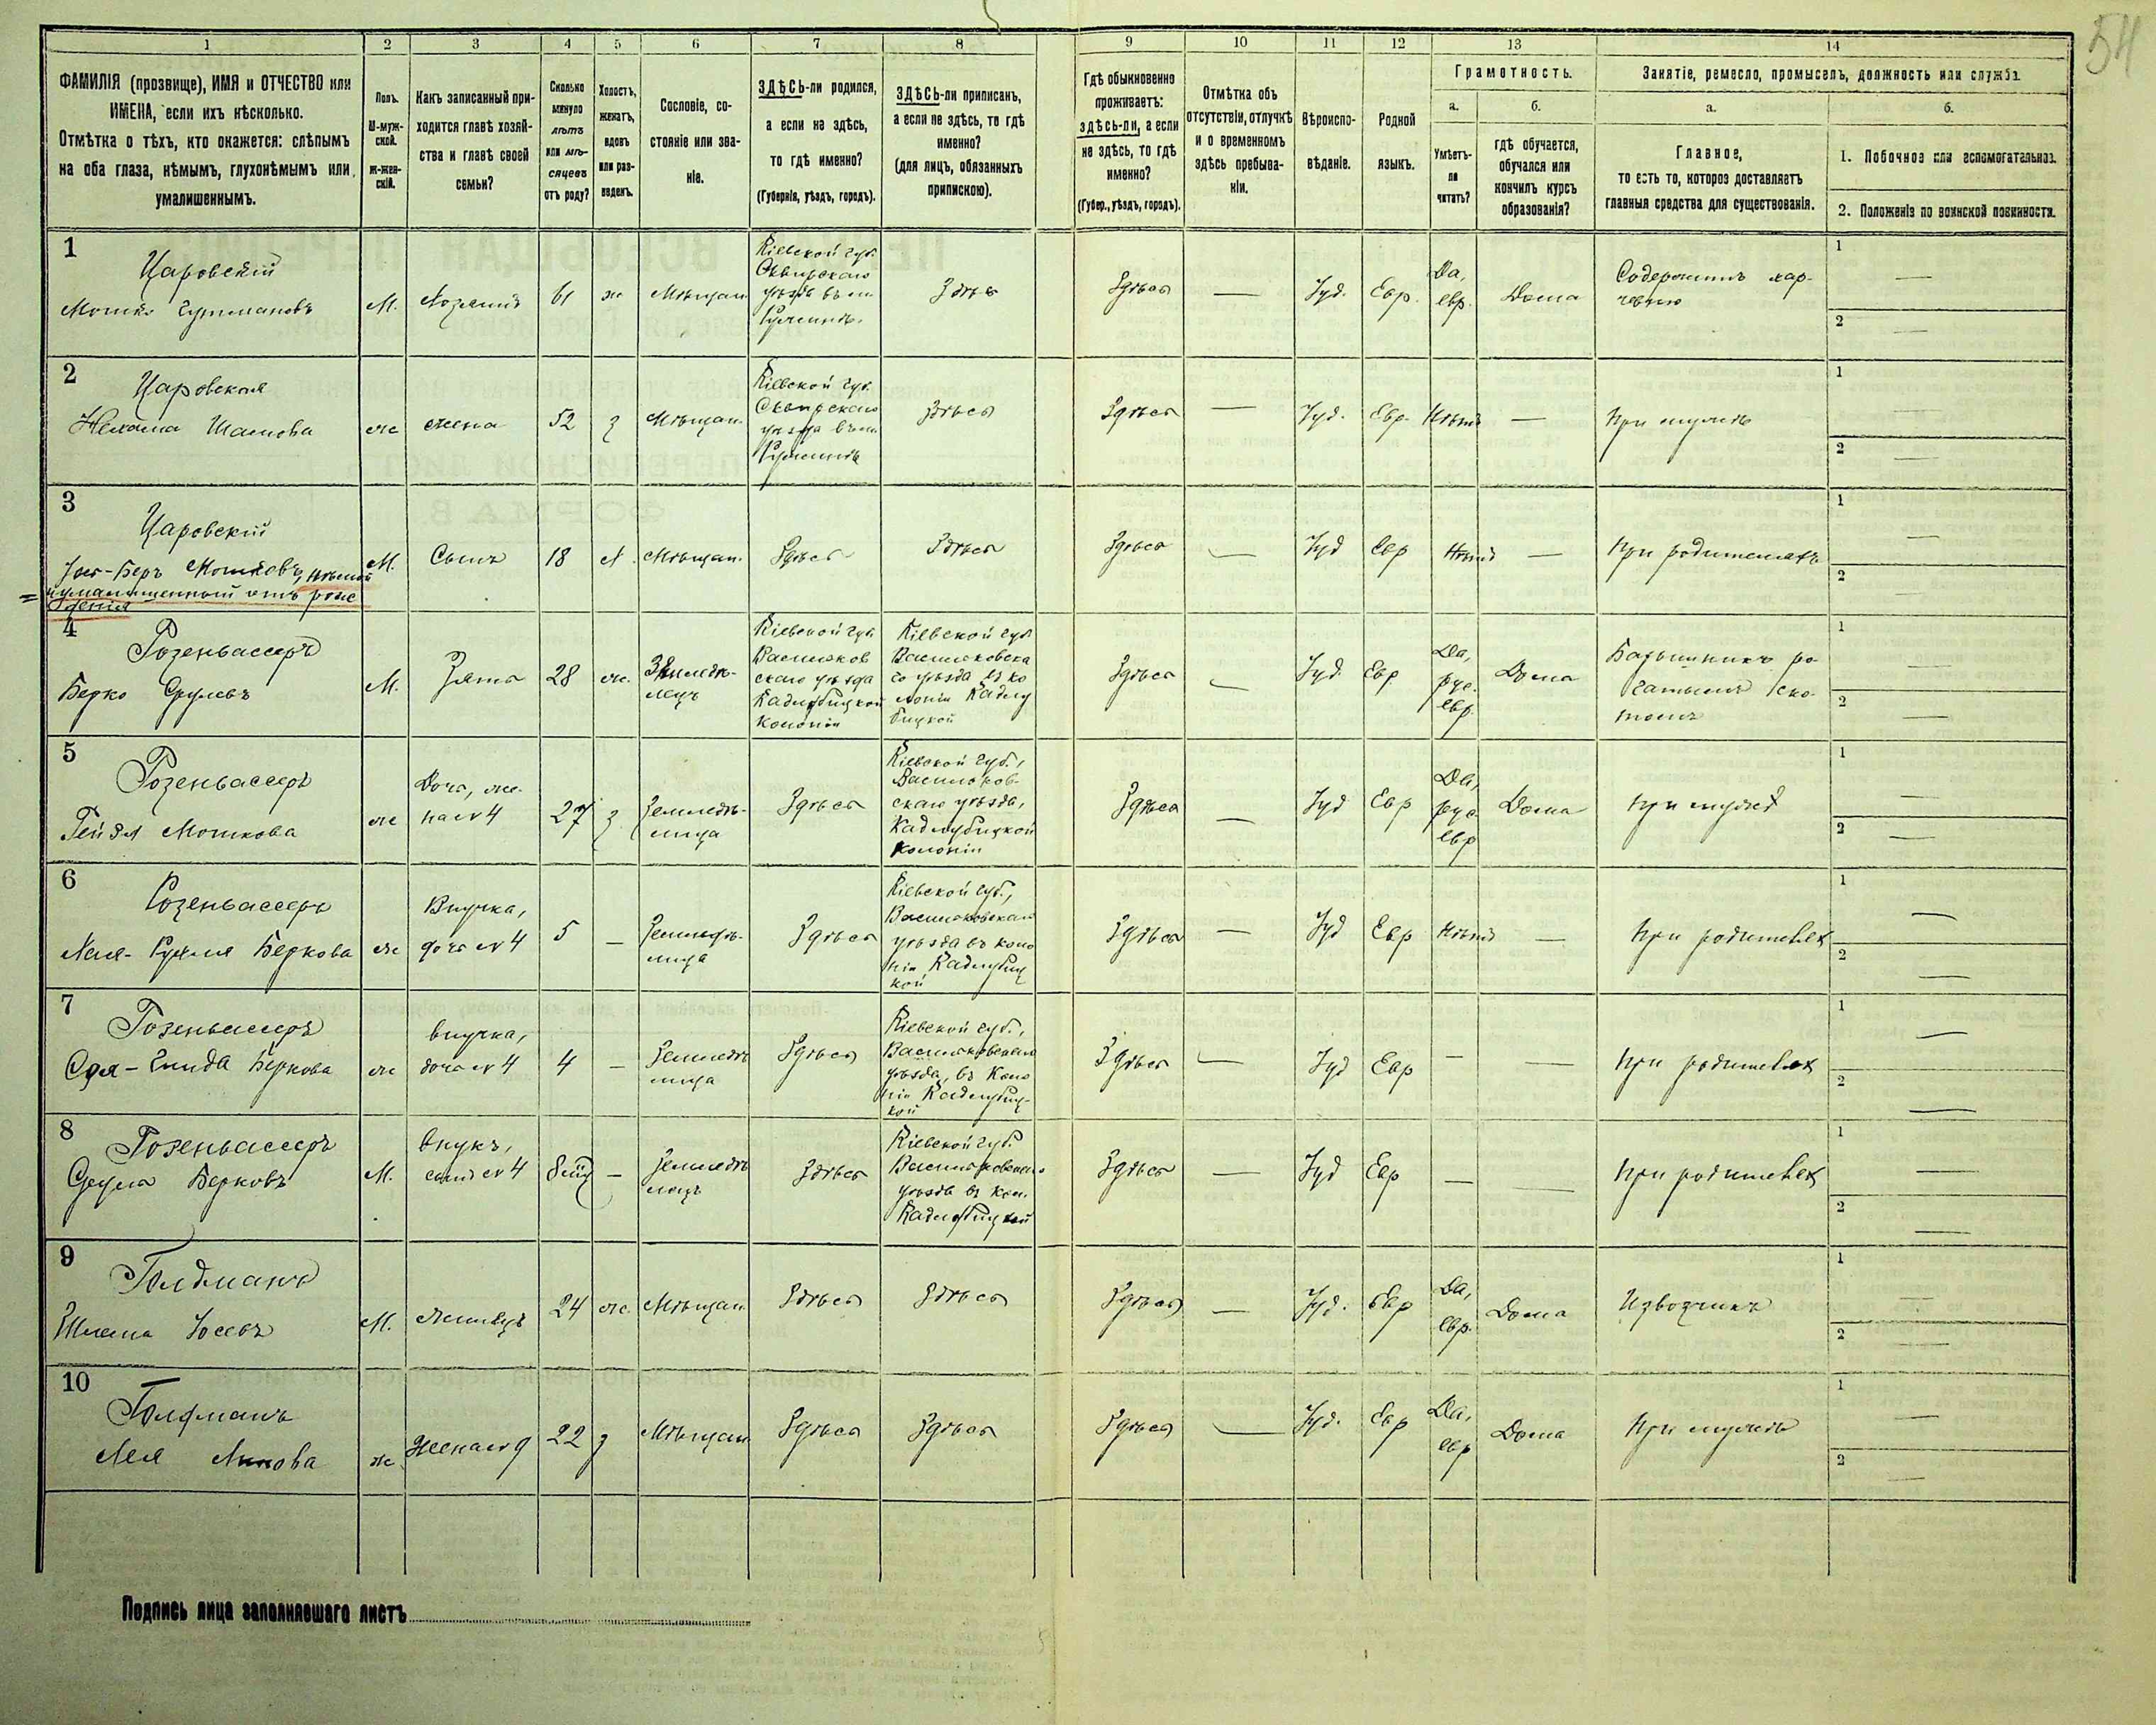 54
1 2 3 4 5 6 7 8 9 10 11 12 13 14
ФАМИЛІЯ (прозвище), ИМЯ и ОТЧЕСТВО или
ИМЕНА, если ихъ нѣсколько.
Отмѣтка о тѣхъ, кто окажется: слѣпымъ
на оба глаза, нѣмымъ, глухонѣмымъ или
умалишеннымъ.
Полъ.
М-муж-
ской.
ж-жен-
скій.
Какъ записанный при-
ходится главѣ хозяй-
ства и главѣ своей
семьи?
Сколько
минуло
лѣтъ
или мѣ-
сяцевъ
отъ роду?
Холостъ,
женатъ,
вдовъ
или раз-
веденъ.
Сословіе, со-
стояніе или зва-
ніе.
ЗДѢСЬ-ли родился,
а если не здѣсь,
то гдѣ именно?
(Губернія, уѣздъ, городъ).
ЗДѢСЬ-ли приписанъ,
а если не здѣсь, то гдѣ
именно?
(для лицъ, обязанныхъ
припискою).
Гдѣ обыкновенно
проживаетъ:
здѣсь-ли, а если
не здѣсь, то гдѣ
именно?
(Губер., уѣздъ, городъ).
Отмѣтка объ
отсутствіи, отлучкѣ
и о временномъ
здѣсь пребыва-
ніи.
Вѣроиспо-
вѣданіе.
Родной
языкъ.
Грамотность.
а.
Умѣетъ-
ли
читать?
б.
гдѣ обучается,
обучался или
кончилъ курсъ
образованія?
Занятіе, ремесло, промыселъ, должность или служба.
а.
Главное,
то есть то, которое доставляетъ
главныя средства для существованія.
б.
1. Побочное или вспомогательное.
2. Положеніе по воинской повинности.
1
Царовскій
Мошко
М.
Хозяинъ
61
ж
Мѣщан
Кіевской губ.
Сквирскаго
уѣзда въ м.
Здѣсь
Здѣсь
—
Іуд.
Евр.
Да,
евр.
Дома
Содержитъ хар-
чевню
1 —
2 —
2
Царовская
Нехама
же
жена
52
з
Мѣщан.
Кіевской губ.
Сквирскаго
уѣзда въ м.
Здѣсь
Здѣсь
—
Іуд.
Евр.
Нѣтъ
—
При мужѣ
1 —
2 —
3
Царовскій
Іос-Беръ Мошковъ, нѣмой
и умалишенный отъ рож
денія
М.
Сынъ
18
х
Мѣщан.
Здѣсь
Здѣсь
Здѣсь
—
Іуд
Евр
Нѣтъ
—
При родителяхъ
1 —
2 —
4
Розенвассеръ
Берко Срулевъ
М.
Зять
28
же.
Земледѣ-
лецъ
Кіевской губ
Васильков
скаго уѣзда
Кадлубицкой
колоніи
Кіевской губ
Васильковска
го уѣзда въ ко
лоніи Кадлу
бицкой
Здѣсь
—
Іуд.
Евр
Да,
рус.
евр.
Дома
Барышникъ ро-
гатымъ ско-
томъ
1 —
2 —
5
Розенвассеръ
Рейзя Мошкова
же
Дочь, же-
на № 4
27
з
Земледѣ-
лица
Здѣсь
Кіевской губ.,
Васильков-
скаго уѣзда,
Кадлубицкой
колоніи
Здѣсь
—
Іуд
Евр
Да,
рус
евр
Дома
При мужѣ
1 —
2 —
6
Розенвассеръ
Хая- Беркова
же
Внучка,
дочь № 4
5
—
Земледѣ-
лица
Здѣсь
Кіевской губ.,
Васильковскаго
уѣзда въ коло
ніи Кадлубиц
кой
Здѣсь
—
Іуд
Евр
Нѣтъ
—
При родителях
1 —
2 —
7
Розенвассеръ
Беркова
же
внучка,
дочь № 4
4
—
Земледѣ
лица
Здѣсь
Кіевской губ.,
Васильковскаго
уѣзда, въ коло
ніи Кадлубиц-
кой
Здѣсь
—
Іуд
Евр
—
—
При родителях
1 —
2 —
8
Розенвассеръ
Сруль Берковъ
М.
Внукъ,
сынъ № 4
—
Земледѣ
лецъ
Здѣсь
Кіевской губ.
Васильковскаго
уѣзда въ кол.
Кадлубицкой
Здѣсь
—
Іуд
Евр
—
—
При родителях
1 —
2 —
9
Голдманъ
Шлема Іосевъ
М.
Жилецъ
24
же.
Мѣщан
Здѣсь
Здѣсь
Здѣсь
—
Іуд.
Евр
Да,
евр.
Дома
Извозчикъ
1 —
2 —
10
Голдманъ
Лея
же
Жена № 9
22
з
Мѣщан
Здѣсь
Здѣсь
Здѣсь
—
Іуд.
Евр
Да,
евр
Дома
При мужѣ
1 —
2 —
Подпись лица заполнявшаго листъ